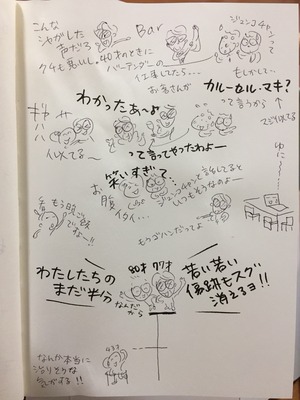 こんな
シャガレた
声だろ
クチも悪いし。40才のときに
バーテンダーの
仕事してたら…
お客さんが
Bar
ジュンコチャンって
もしかして…
カルーセル・マキ?
って言うから
マジ似てる
わかったあ〜よ
って言ってやったわよー
ギャハハ
似てる〜
笑いすぎて
お腹
イタイ…
ジュンコチャンと話してると
いつもそうなのよー
もう晩ご飯
ですよー!!
もうゴハンだってよ
わたしたちの
まだ半分
80才
なんだから
若い若い
傷跡もスグ
消えるヨ!!
43才
なんか本当に
治りそうな
気がする!!